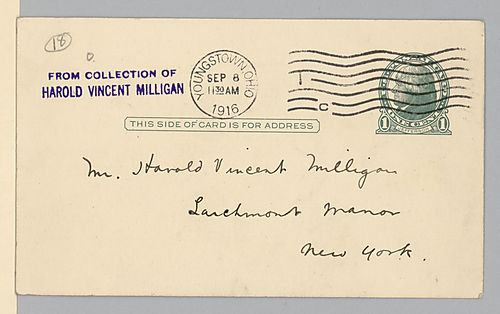 18
FROM COLLECTION OF
HAROLD VINCENT MILLIGAN
YOUNGSTOWN, OHIO
SEP 8
11 30 AM
1916
C
1 JEFFERSON 1
THIS SIDE OF CARD IS FOR ADDRESS
Mr. Harold Vincent Milligan
Larchmont Manor
New York.